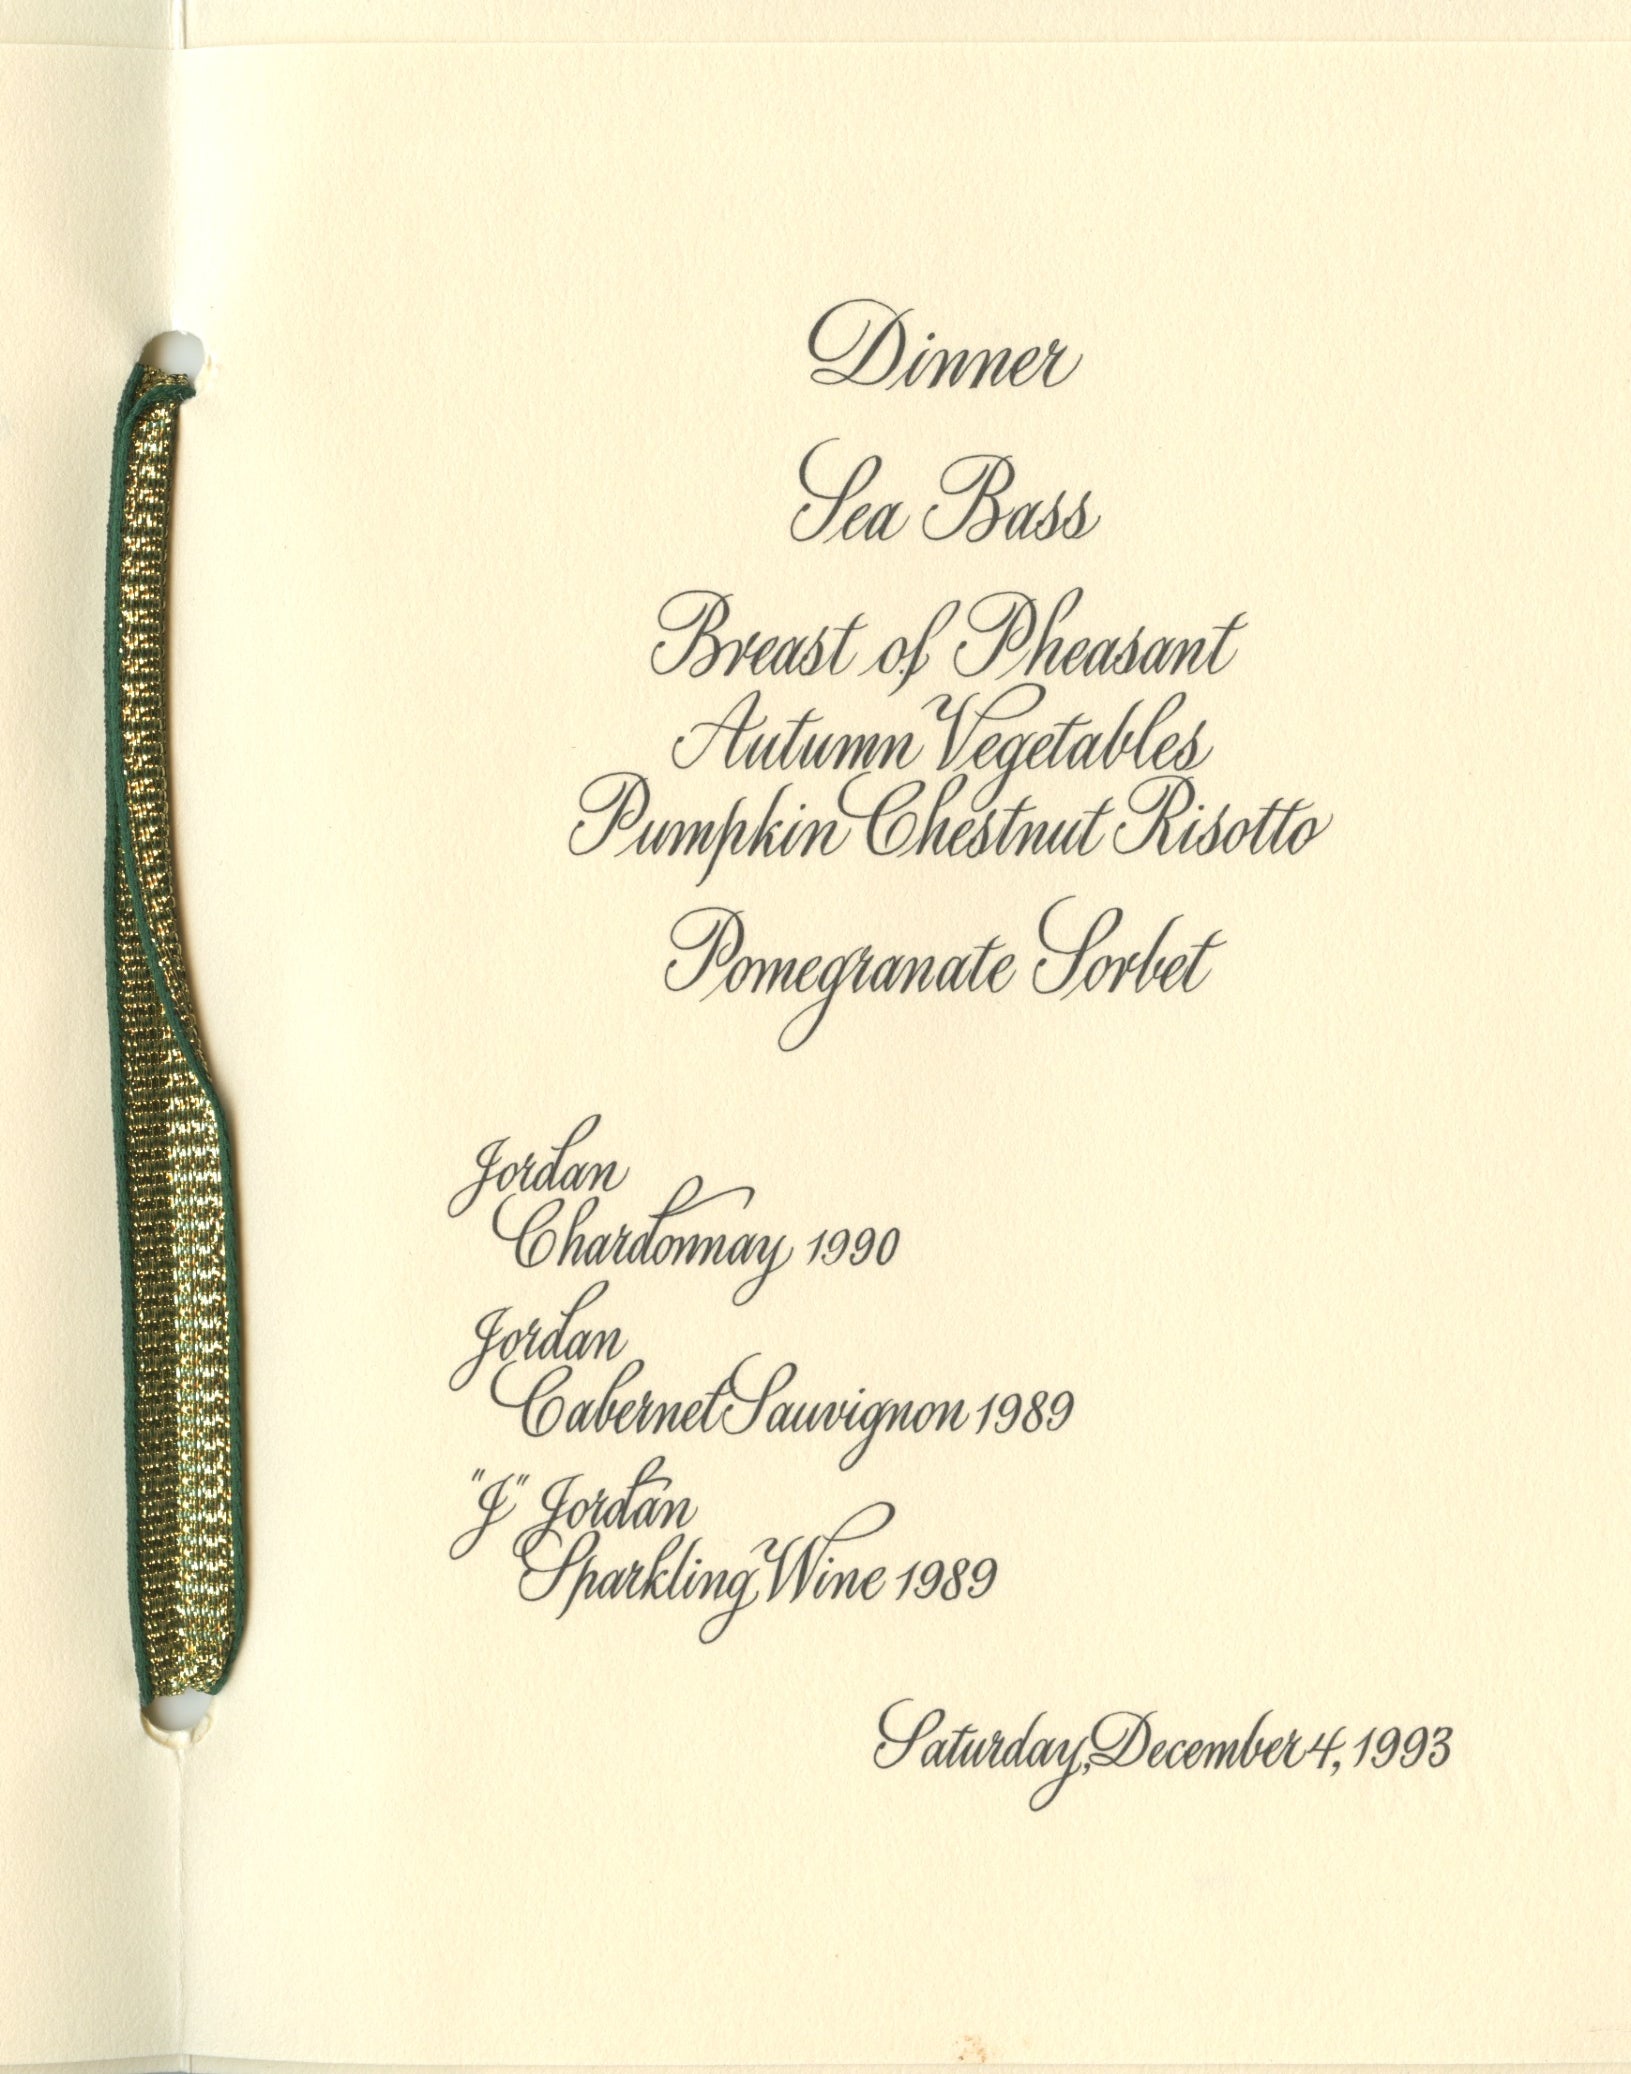 Dinner
Sea Bass
Breast of Pheasant
Autumn Vegetables
Pumpkin Chestnut Risotto
Pomegranate Sorbet
Jordan
Chardonnay 1990
Jordan
Cabernet Sauvignon 1989
"J" Jordan
Sparkling Wine 1989
Saturday, December 4, 1993